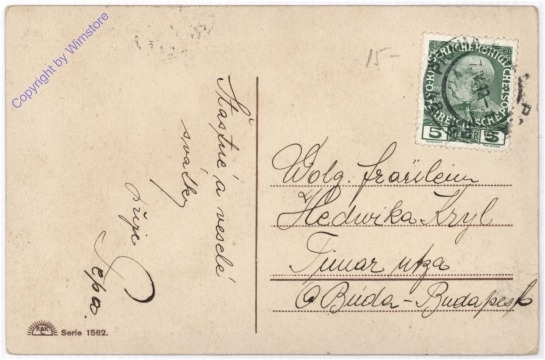 Copyright by Wimstore
15-
Šťastné a veselé
svátky
přeje
Pepa.
KAISERLICHE KÖNIGLICHE
ÖSTERREICHISCHE POST
5 5
Wolg. fräulein
Hedwika Kryl
Timar utza
Buda-Budapest
Serie 1562.